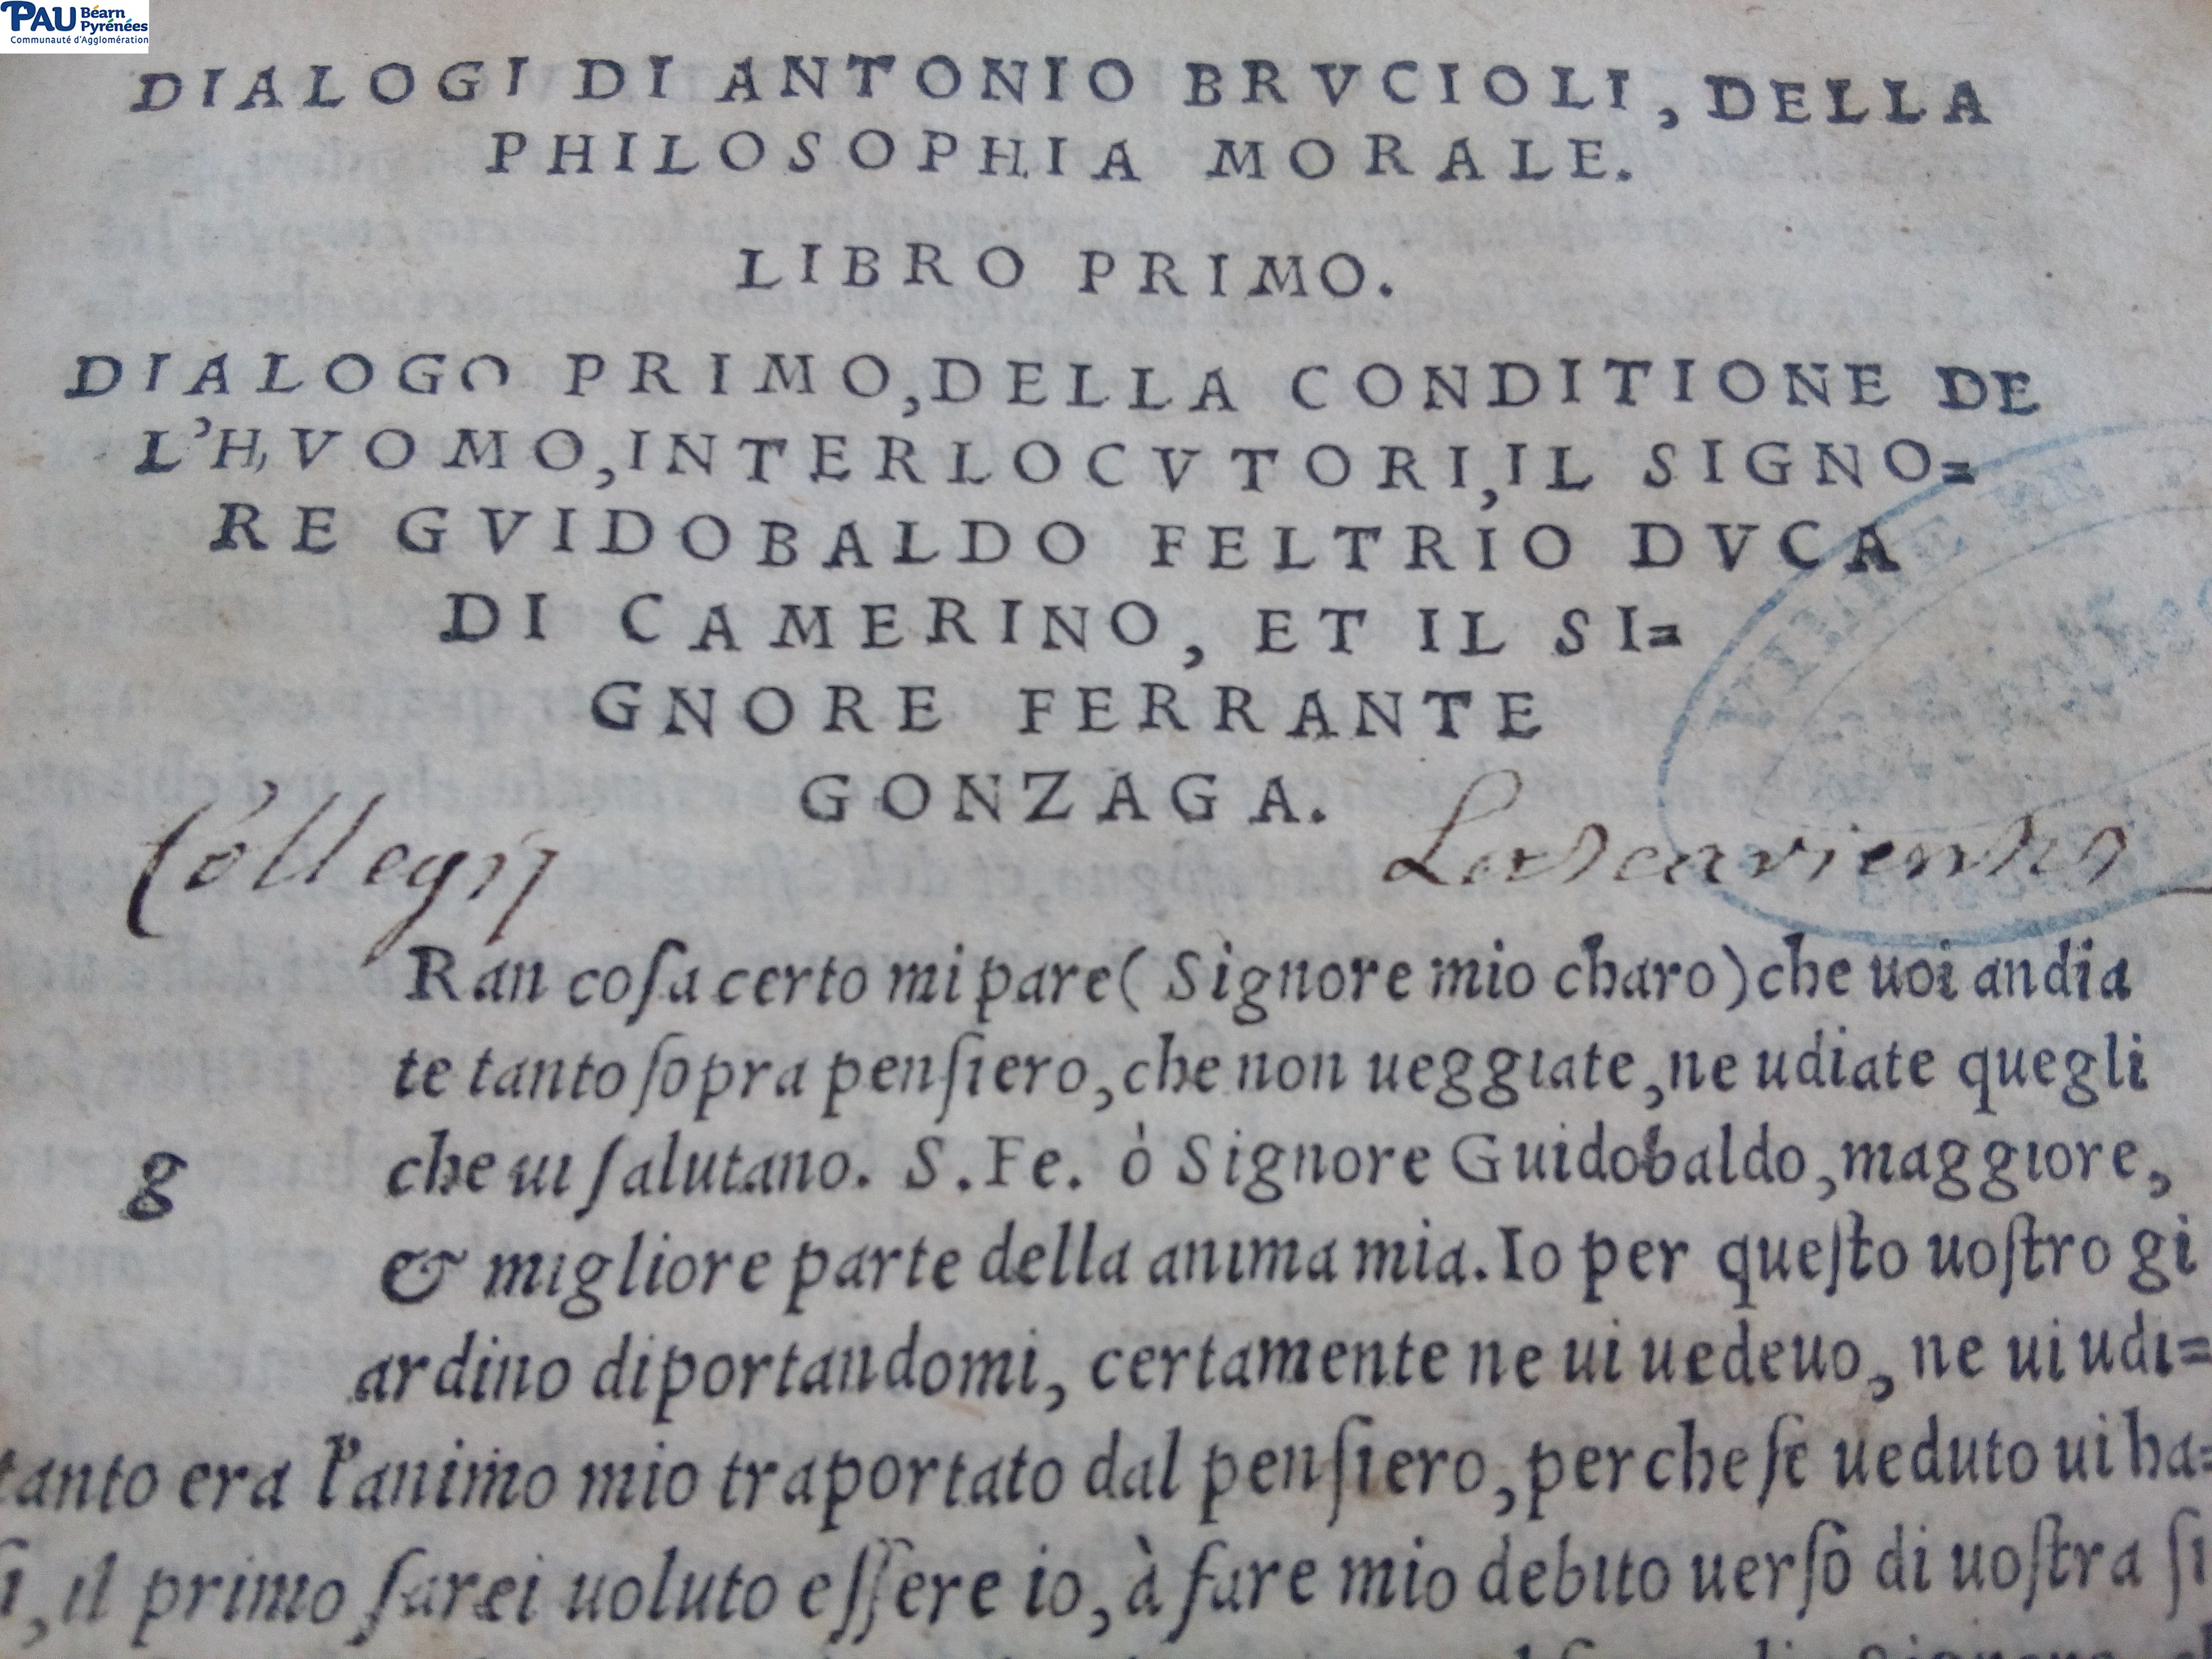 PAU Béarn
Pyrénées
Communauté d'Agglomération
DIALOGI DI ANTONIO BRVCIOLI, DELLA
PHILOSOPHIA MORALE.
LIBRO PRIMO.
DIALOGO PRIMO, DELLA CONDITIONE DE
L'HVOMO, INTERLOCVTORI, IL SIGNO=
RE GVIDOBALDO FELTRIO DVCA
DI CAMERINO, ET IL SI=
GNORE FERRANTE
GONZAGA.
VILLE DE
Collegij
Ran coſa certo mi pare ( Signore mio charo ) che uoi andia
te tanto ſopra penſiero, che non ueggiate, ne udiate quegli
g
che ui ſalutano. S. Fe. ò Signore Guidobaldo, maggiore,
& migliore parte della anima mia. Io per queſto uoſtro gi
ardino diportandomi, certamente ne ui uedeuo, ne ui udi=
tanto era l'animo mio traportato dal penſiero, perche ſe ueduto ui ha=
il primo ſarei uoluto eſſere io, à fare mio debito uerſo di uoſtra ſi